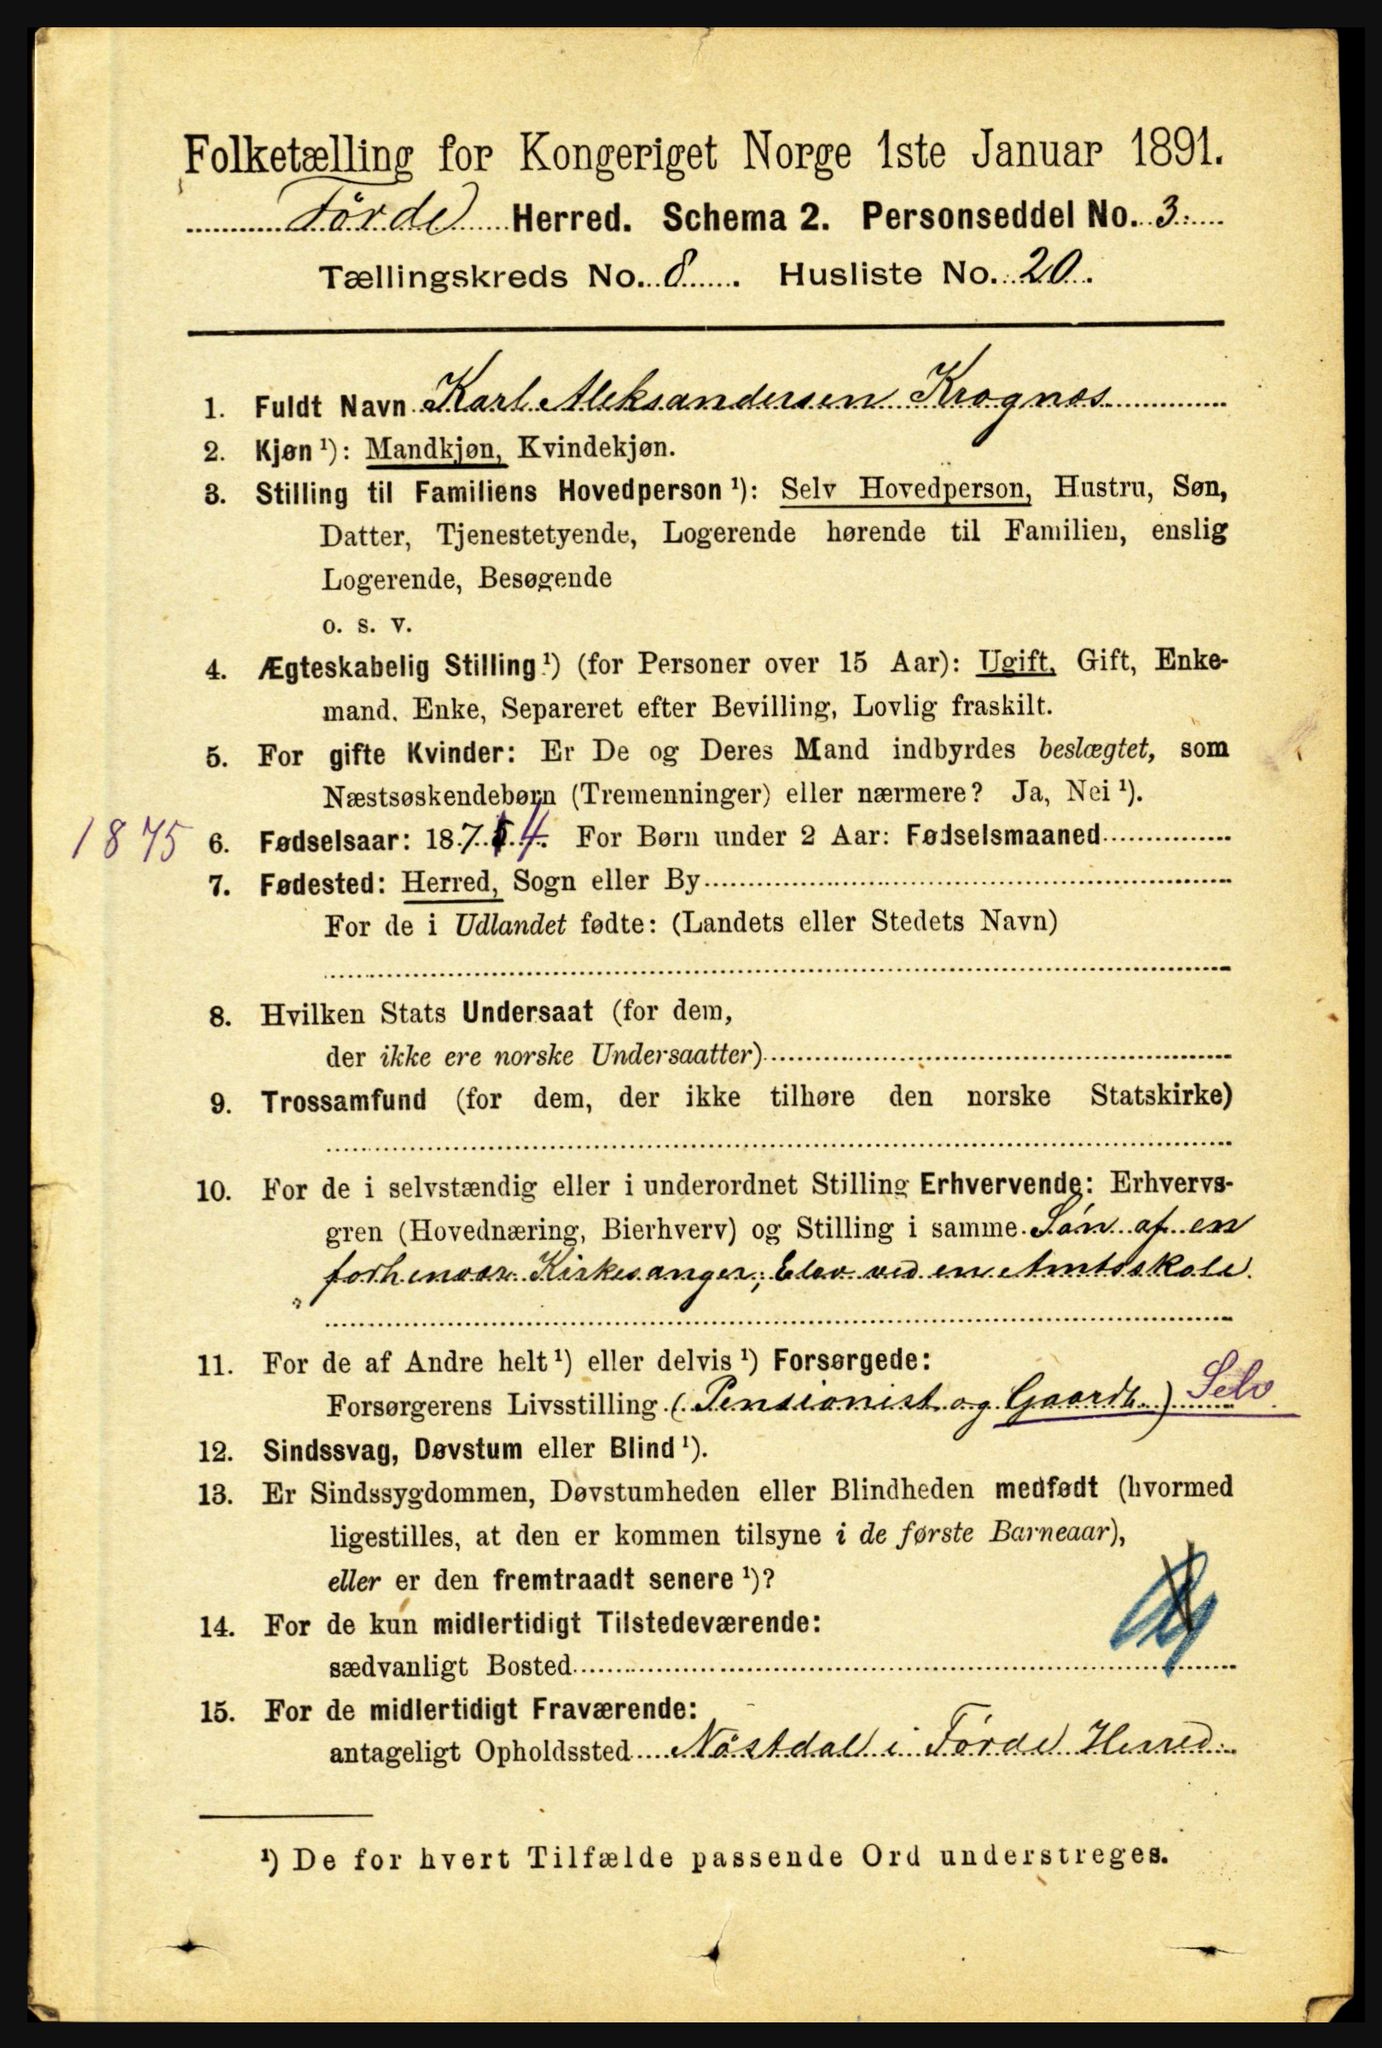 Folketælling for Kongeriget Norge 1ste Januar 1891.
Förde Herred. Schema 2. Personseddel No. 3.
Tællingskreds No. 8. Husliste No. 20.
1. Fuldt Navn Karl Aleksandersen Krognæs
2. Kjøn ¹): Mandkjøn, Kvindekjøn.
3. Stilling til Familiens Hovedperson ¹): Selv Hovedperson, Hustru, Søn,
Datter, Tjenestetyende, Logerende hørende til Familien, enslig
Logerende, Besøgende
o. s. v.
4. Ægteskabelig Stilling ¹) (for Personer over 15 Aar): Ugift, Gift, Enke-
mand, Enke, Separeret efter Bevilling, Lovlig fraskilt.
5. For gifte Kvinder: Er De og Deres Mand indbyrdes beslægtet, som
Næstsøskendebørn (Tremenninger) eller nærmere? Ja, Nei ¹).
1875 6. Fødselsaar: 1874. For Børn under 2 Aar: Fødselsmaaned
7. Fødested: Herred, Sogn eller By
For de i Udlandet fødte: (Landets eller Stedets Navn)
8. Hvilken Stats Undersaat (for dem,
der ikke ere norske Undersaatter)
9. Trossamfund (for dem, der ikke tilhøre den norske Statskirke)
10. For de i selvstændig eller i underordnet Stilling Erhvervende: Erhvervs-
gren (Hovednæring, Bierhverv) og Stilling i samme Sön af en
forhenvær. Kirkesanger; Elev ved en Amtsskole.
11. For de af Andre helt ¹) eller delvis ¹) Forsørgede:
Forsørgerens Livsstilling (Pensionist og Gaardb.) Selv
12. Sindssvag, Døvstum eller Blind ¹).
13. Er Sindssygdommen, Døvstumheden eller Blindheden medfødt (hvormed
ligestilles, at den er kommen tilsyne i de første Barneaar),
eller er den fremtraadt senere ¹)?
14. For de kun midlertidigt Tilstedeværende:
sædvanligt Bosted
15. For de midlertidigt Fraværende:
antageligt Opholdssted Nöstdal i Förde Herred.
¹) De for hvert Tilfælde passende Ord understreges.